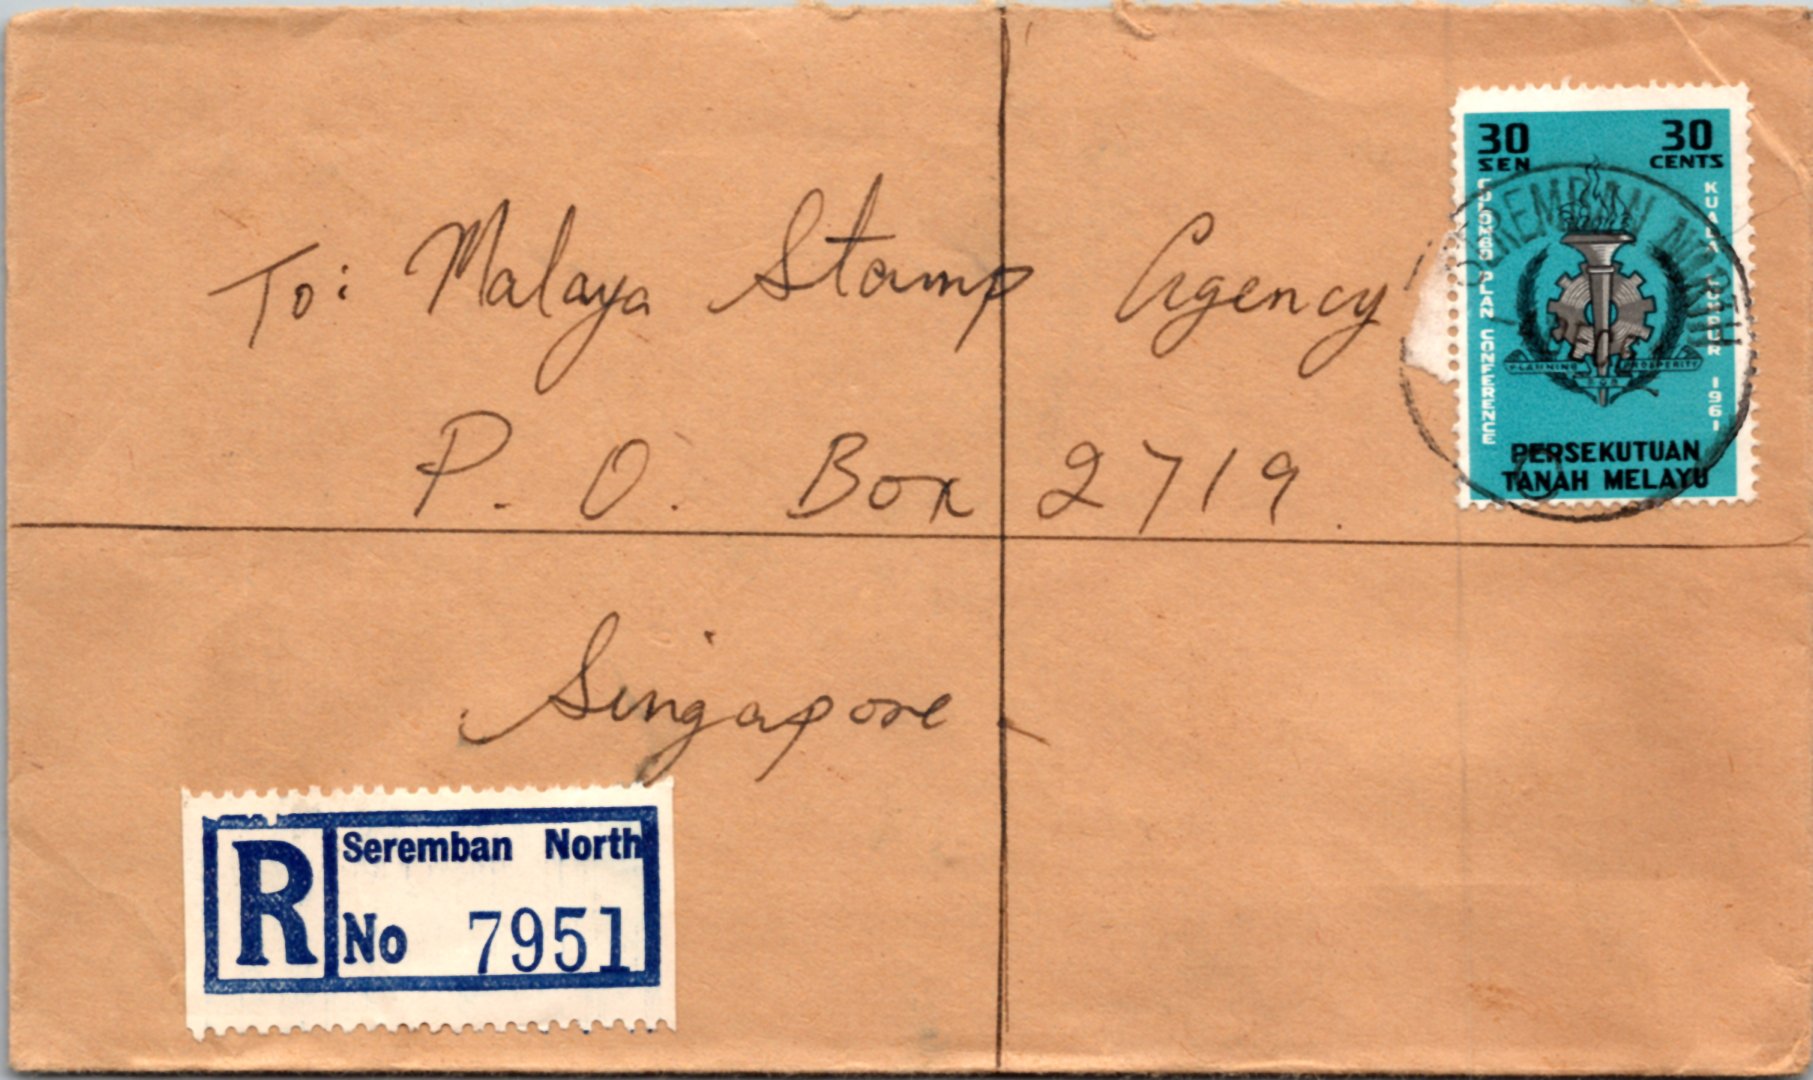 30 SEN
30 CENTS
COLOMBO PLAN CONFERENCE
KUALA LUMPUR 1961
PLANNING FOR PROSPERITY
PERSEKUTUAN
TANAH MELAYU
SEREMBAN NORTH
To: Malaya Stamp Agency
P. O. Box 2719.
Singapore.
R
Seremban North
No 7951